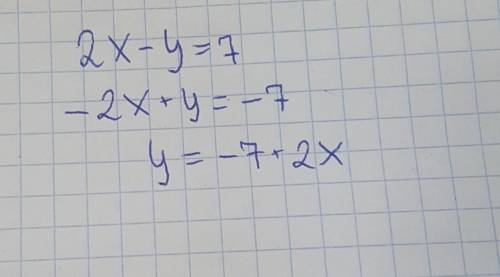 2x - y = 7
-2x + y = -7
y = -7 + 2x